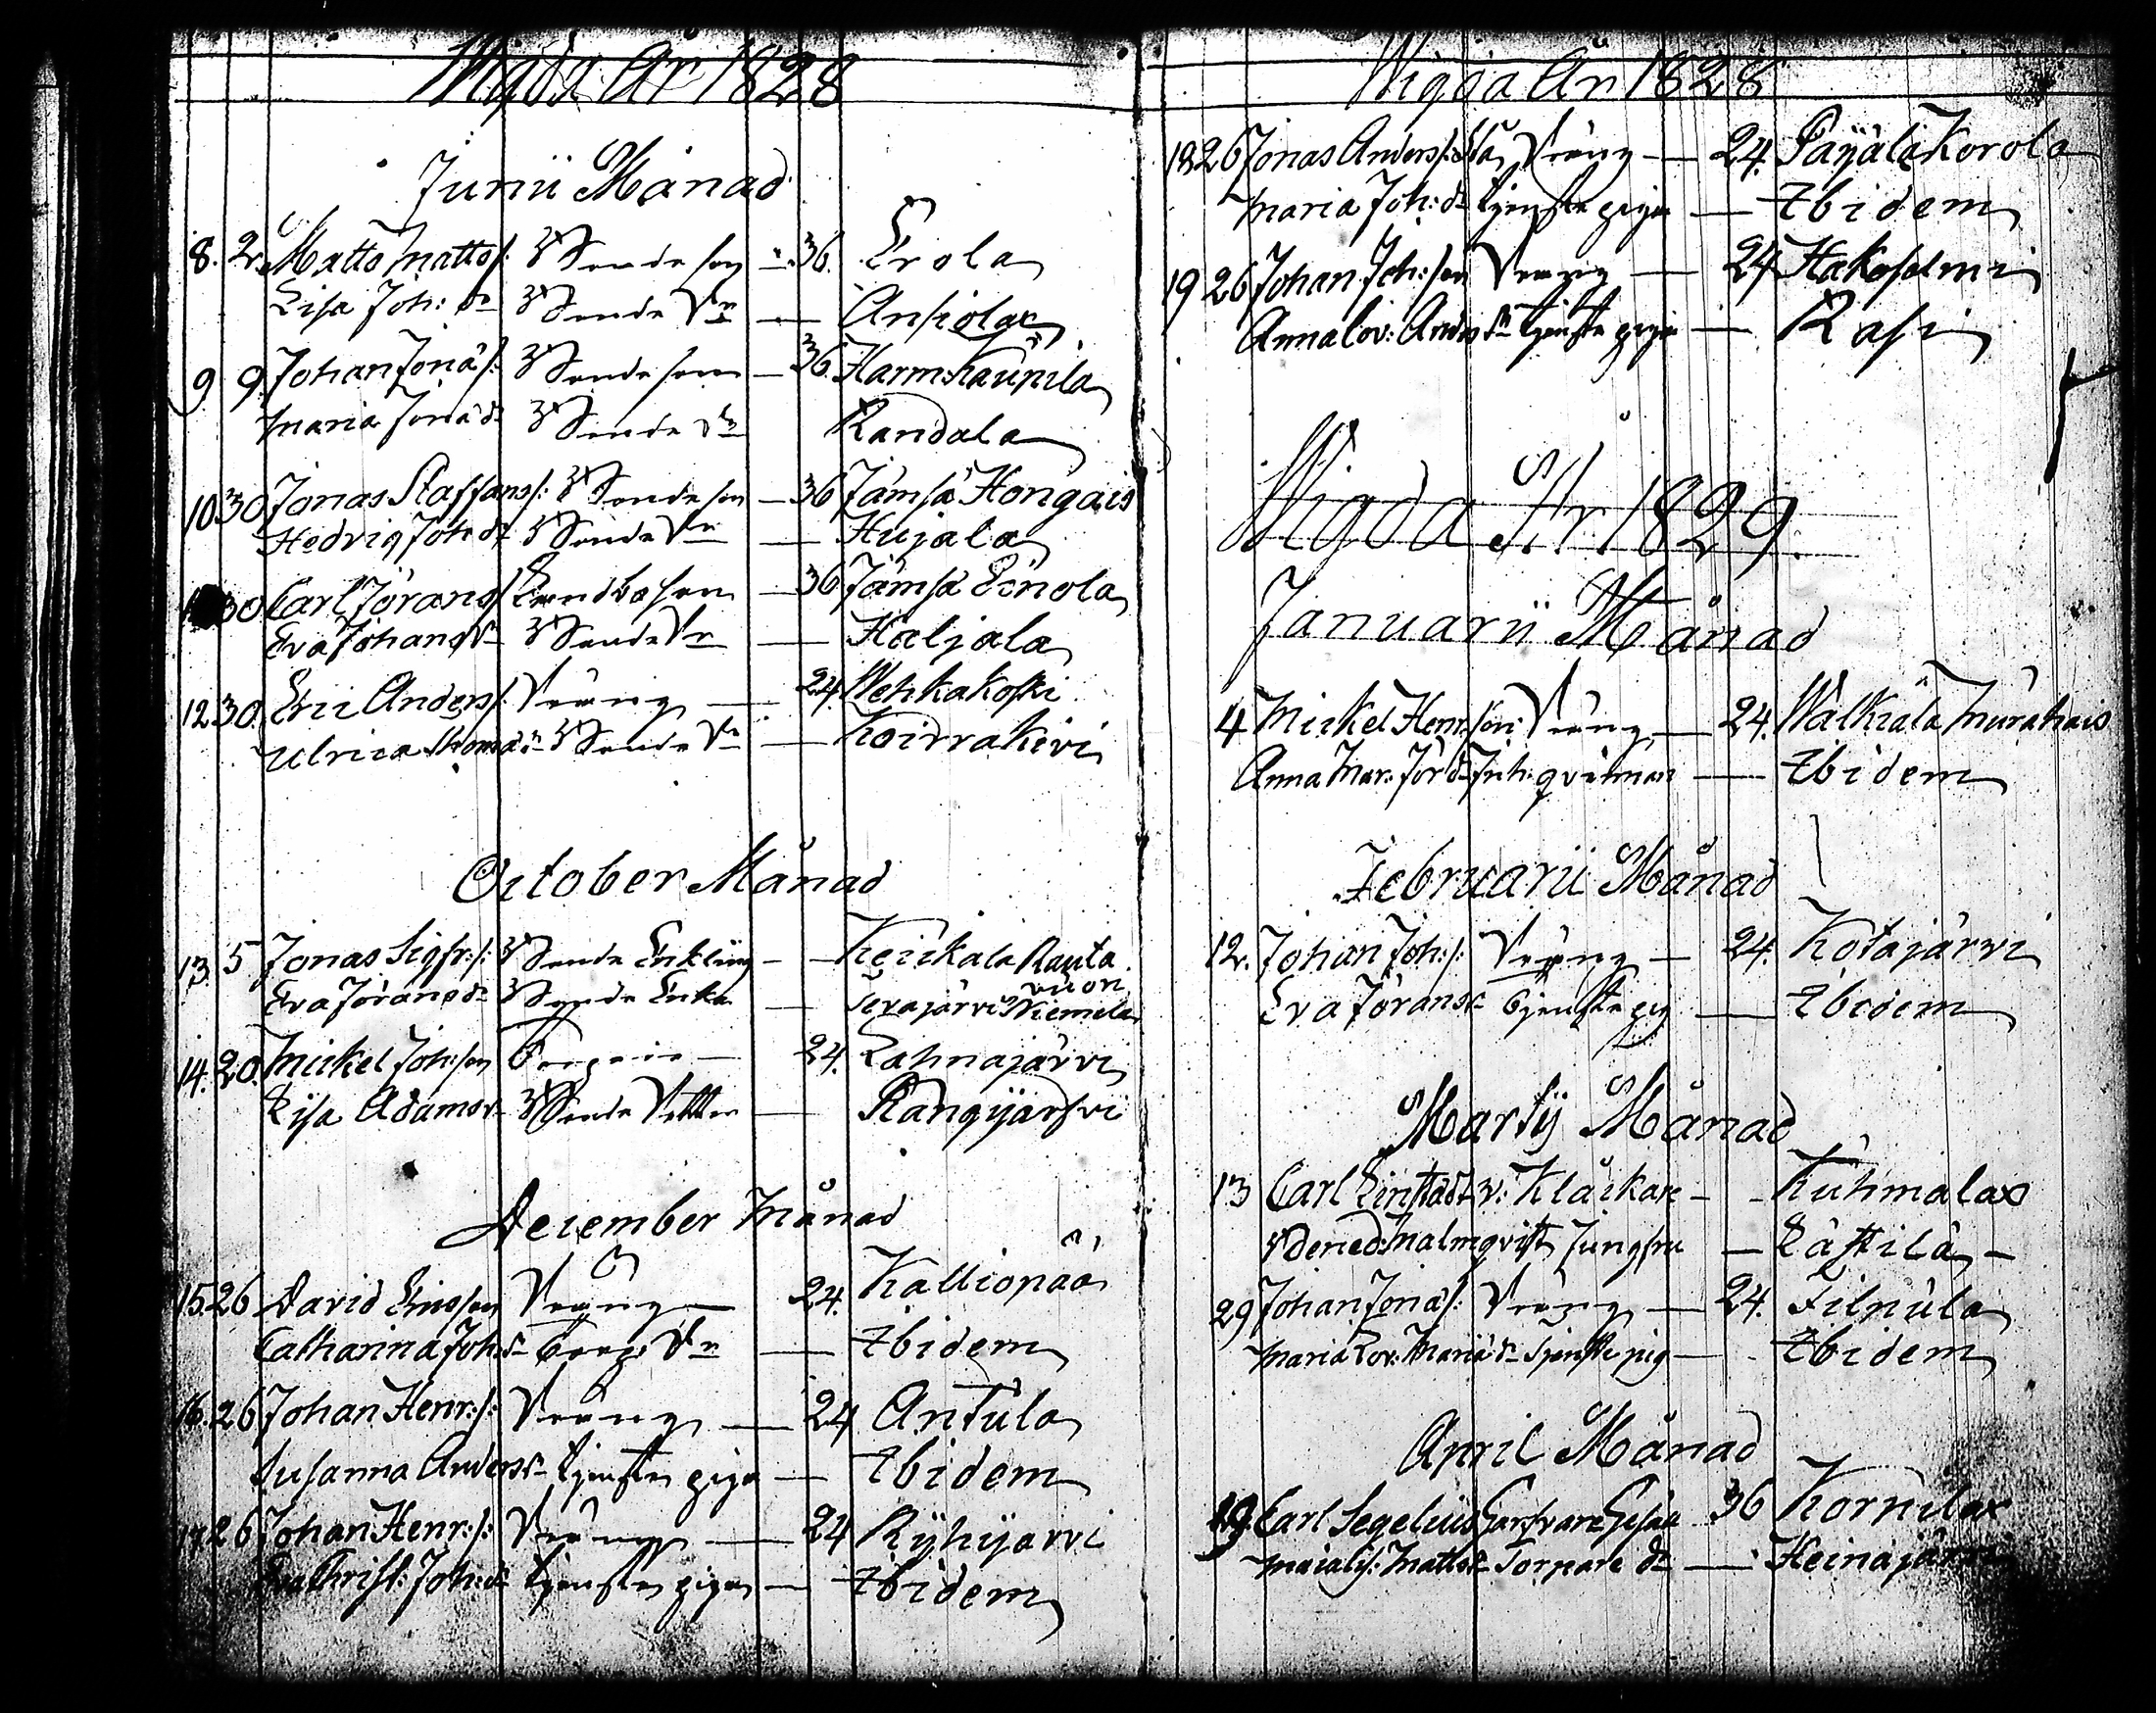 Wigda År 1828
Junii Månad
8. 2. Matts Matts s: Bonde son 36. Erola
Lisa Joh: dr Bonde dr — Ansiolax
9 9. Johan Jonä s: Bonde son — 36. Harmkaunila
Maria Jonä dr Bonde dr Randala
10 30 Jonas Staffans s: Bonde son — 36 Jämsä Hongais
Hedvig Joh dr Bonde dr — Hujala
30 Carl Jörans s: son — 36 Jämsä Einola
Eva Johans dr Bonde dr — Haljala
12 30. Eric Anders s: Dräng — 24. Wehkakoski
Ulrica Thoma dr Bonde dr — Koirrakivi
October Månad
13. 5 Jonas Sigfr: s: Bonde Enkling — Keikala Rauta
vuori
Eva Jörans dr Bonde Enka — Seväjärvi Niemela
14. 20. Mickel Joh: son — 24. Lahnajärvi
Lisa Adams dr Bonde dotter — Kangijärfvi
December Månad
15. 26 David Ericsson Dräng — 24. Kallionpää
Catharina Joh: dr dr — Ibidem
16. 26 Johan Henr: s: Dräng — 24 Antula
Susanna Anders dr tjenste piga — Ibidem
17. 26 Johan Henr: s: Dräng — 24 Ryhijärvi
Eva Christ: Joh: dr tjenste piga — Ibidem
Wigda År 1828
18 26 Jonas Anders s: Dräng — 24. Päyälä Korola
Maria Joh: dr tjenste piga — Ibidem
19 26 Johan Joh: son Dräng — 24 Hakoselmi
Anna Lov: Anders dr tjenste piga — Rasi
Wigda År 1829.
Januarii Månad
4 Mickel Henr: son Dräng — 24. Walkiala Murahais
Anna Mar: Jör dr Inh: qvinnan — Ibidem
Februarii Månad
12. Johan Joh: s: Dräng — 24. Kotajärvi
Eva Jörans dr tjenste pig — Ibidem
Martij Månad
13 Carl v: Kläckare — Kuhmalax
Malmqvist Jungfru — Lästilä —
29 Johan Jonä s: Dräng — 24. Filpula
Maria Lov: Mariä dr tjenste pig — Ibidem
April Månad
19 Carl Segelius Garfvare 36 Kornilax
Maja Lis: Matts dr Torpare dr — Heinäjärvi